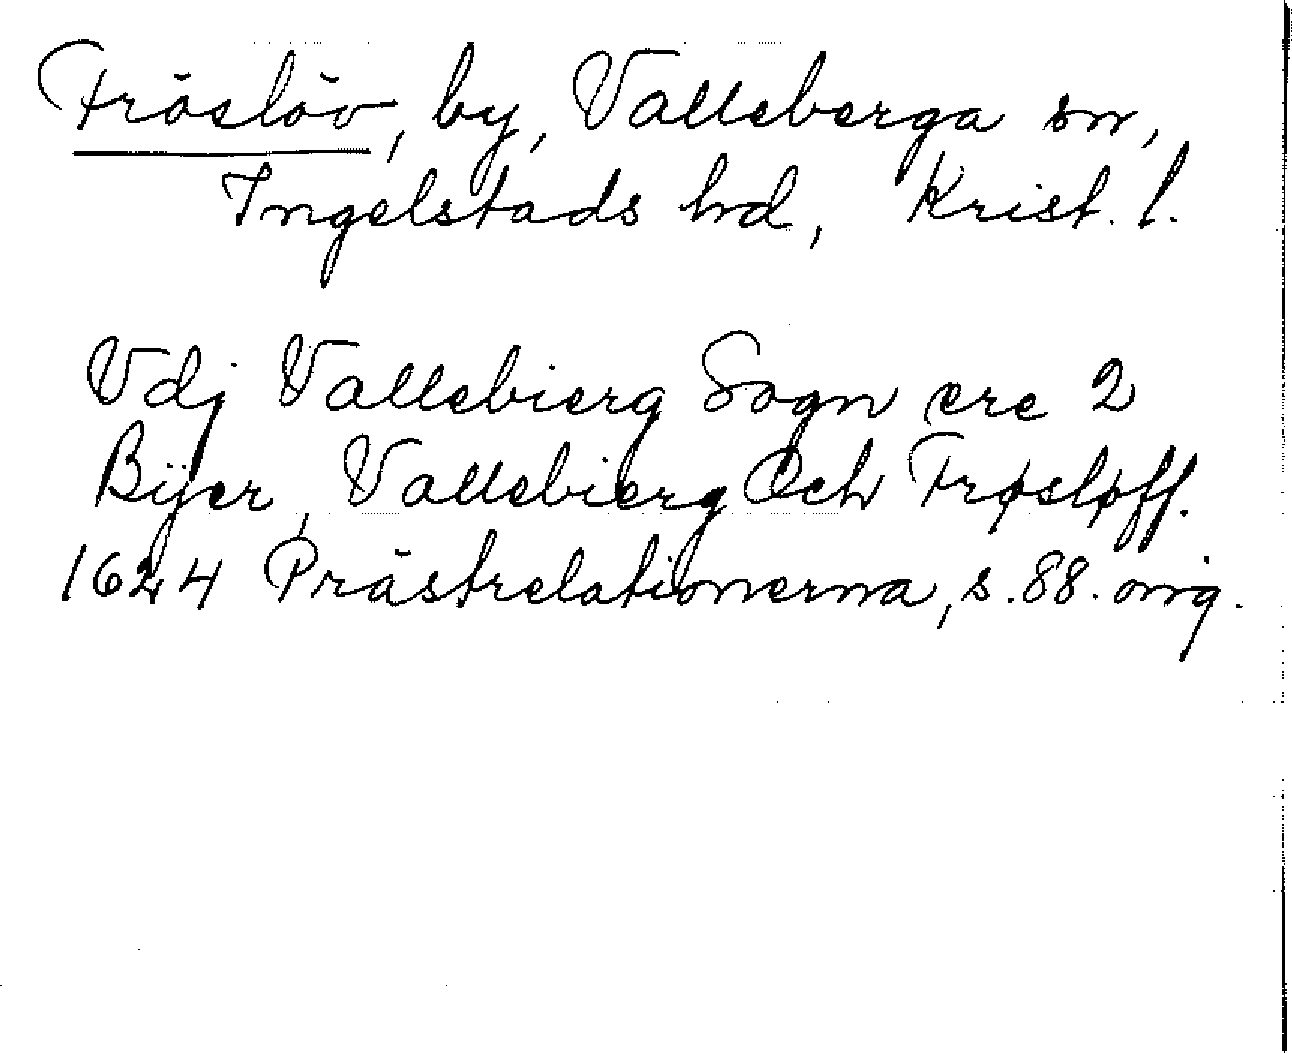 Fröslöv, by, Valleberga sn,
Ingelstads hd, Krist. l.
Vdj Vallebierg Sogn ere 2
Bÿer, Vallebierg Och Frøsløff.
1624 Prästrelationerna, s. 88. orig.